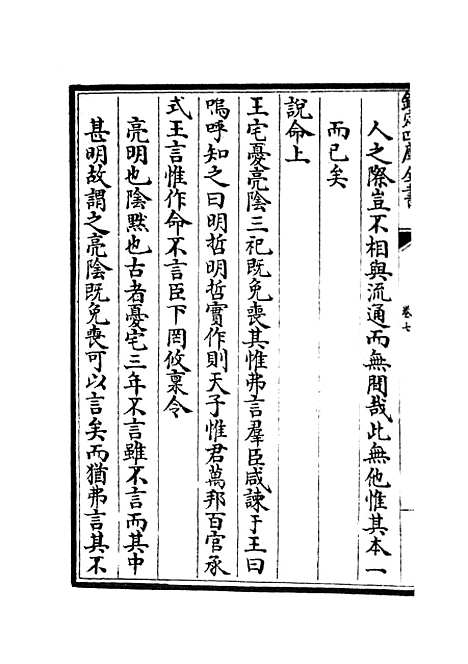 欽定四庫全書
卷七
人之際豈不相與流通而無間哉此無他惟其本一
而已矣
說命上
王宅憂亮陰三祀既免喪其惟弗言羣臣咸諫于王曰
嗚呼知之曰明哲明哲實作則天子惟君萬邦百官承
式王言惟作命不言臣下罔攸稟令
亮明也陰默也古者憂宅三年不言雖不言而其中
甚明故謂之亮陰既免喪可以言矣而猶弗言其不